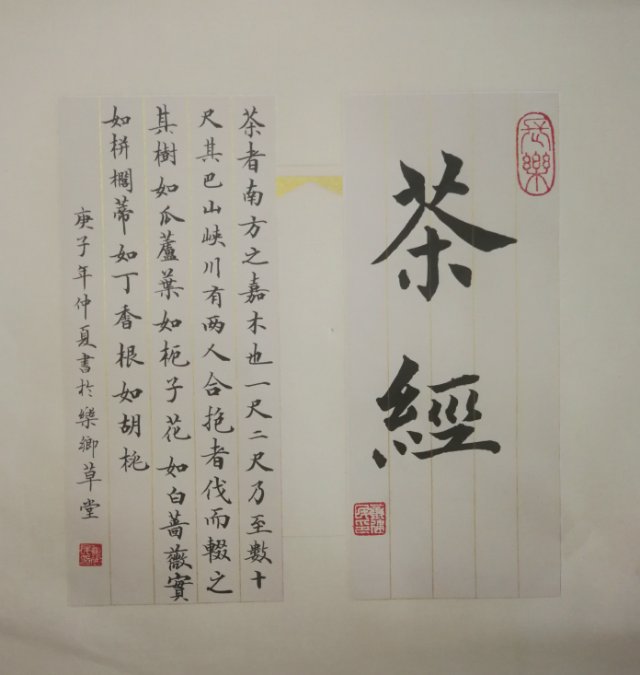 長樂
茶經
茶者南方之嘉木也一尺二尺乃至數十
尺其巴山峡川有两人合抱者伐而輟之
其樹如瓜蘆葉如枙子花如白薔薇實
如栟櫚蒂如丁香根如胡桃
庚子年仲夏書於樂鄉草堂